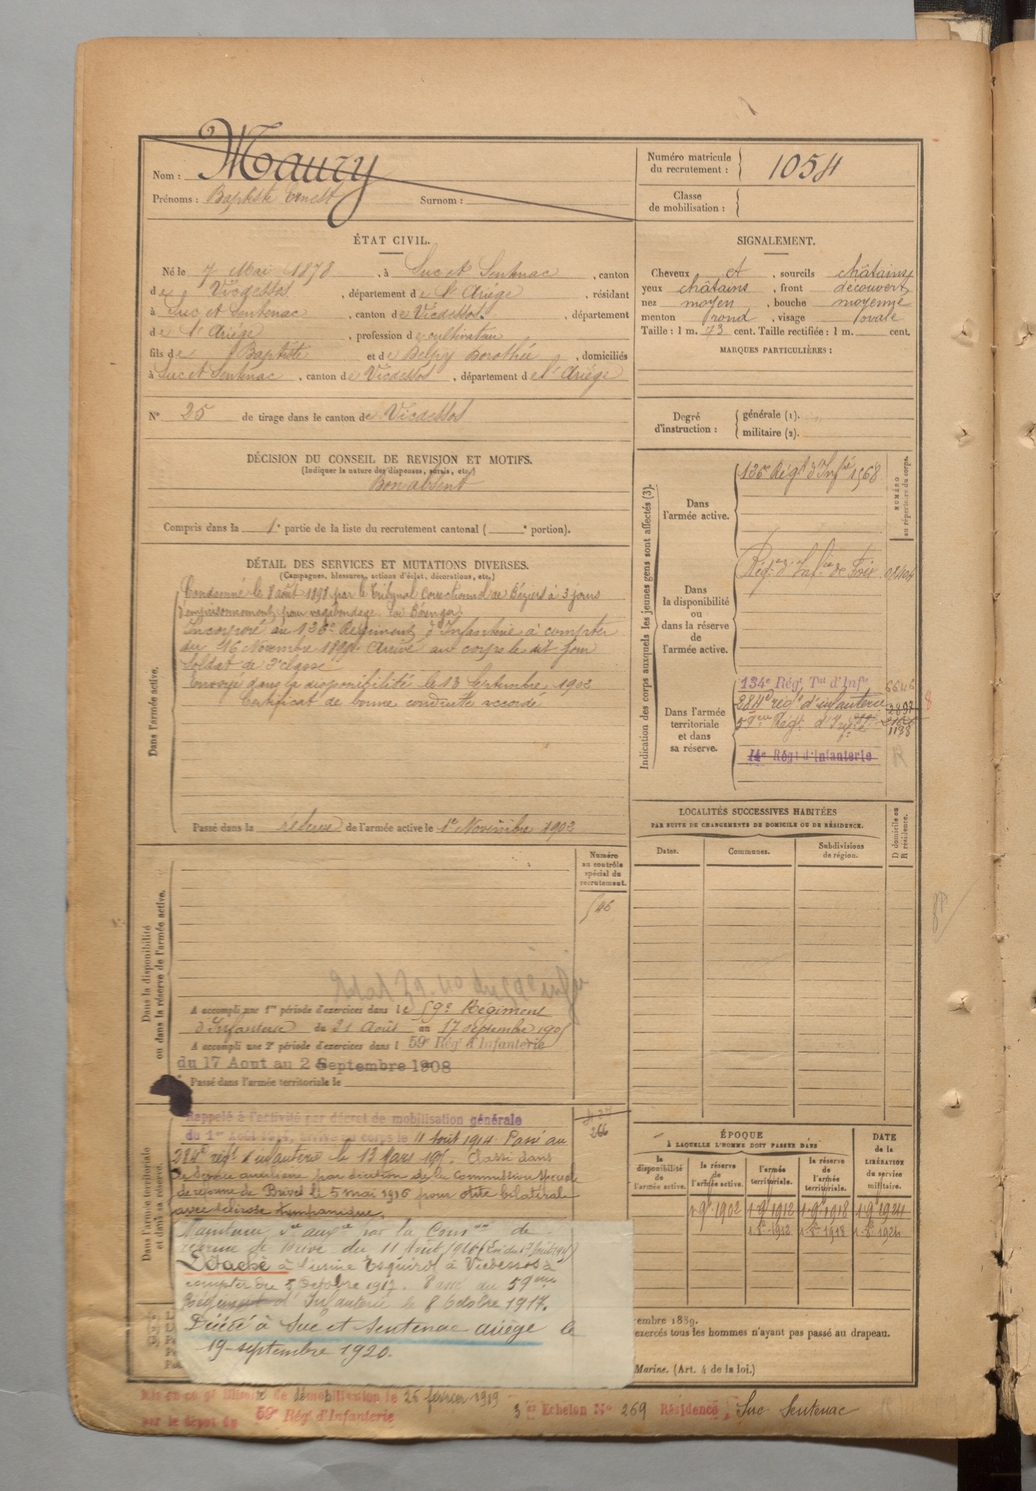 Nom : Maury
Prénoms : Baptiste Ernest Surnom :
Numéro matricule du recrutement : 1054
Classe de mobilisation :
ÉTAT CIVIL.
Né le 7 Mai 1878, à Suc et Sentenac, canton
de Vicdessos, département de l'Ariège, résidant
à Suc et Sentenac, canton de Vicdessos, département
de l'Ariège, profession de cultivateur
fils de Baptiste et de Delpy Dorothée, domiciliés
à Suc et Sentenac, canton de Vicdessos, département de l'Ariège
N° 25 de tirage dans le canton de Vicdessos
SIGNALEMENT.
Cheveux et, sourcils châtains
yeux châtains, front découvert
nez moyen, bouche moyenne
menton rond, visage ovale
Taille : 1 m. 73 cent. Taille rectifiée : 1 m. cent.
MARQUES PARTICULIÈRES :
Degré d'instruction : générale (1).
militaire (2).
DÉCISION DU CONSEIL DE REVISION ET MOTIFS.
(Indiquer la nature des dispenses, sursis, etc.)
Bon absent
Compris dans la 1e partie de la liste du recrutement cantonal ( e portion).
DÉTAIL DES SERVICES ET MUTATIONS DIVERSES.
(Campagnes, blessures, actions d'éclat, décorations, etc.)
Dans l'armée active.
Condamné le 8 août 1898 par le Tribunal Correctionnel de Béziers à 3 jours
d'emprisonnement pour vagabondage.
Incorporé au 136e Régiment d'Infanterie à compter
du 16 Novembre 1899. Arrivé au corps le dit jour
soldat de 2e classe
Envoyé dans la disponibilité le 13 Septembre 1902
Certificat de bonne conduite accordé
Passé dans la réserve de l'armée active le 1er Novembre 1902
Indication des corps auxquels les jeunes gens sont affectés (3).
NUMÉRO au répertoire du corps.
Dans l'armée active.
136e Régt d'Infie 1568
Dans la disponibilité ou dans la réserve de l'armée active.
Régt d'Infie de Foix
Dans l'armée territoriale et dans sa réserve.
134e Rég. Tal d'Infie
284e régt d'infanterie
59ème Régt d'Infie 1138
14e Régt d'Infanterie
LOCALITÉS SUCCESSIVES HABITÉES
PAR SUITE DE CHANGEMENTS DE DOMICILE OU DE RÉSIDENCE.
Dates. Communes. Subdivisions de région. D domicile ou R résidence.
Dans la disponibilité ou dans la réserve de l'armée active.
Numéro au contrôle spécial du recrutement.
A accompli une 1re période d'exercices dans le 59e Régiment
d'Infanterie du 21 Août au 17 septembre 1905
A accompli une 2e période d'exercices dans l 59e Rég. d'Infanterie
du 17 Aout au 2 Septembre 1908
Passé dans l'armée territoriale le
Dans l'armée territoriale et dans sa réserve.
Rappelé à l'activité par décret de mobilisation générale
du 1er Août 1914, arrivé au corps le 11 Août 1914 Passé au
284e régt d'infanterie le 13 Mars 1915. Classé dans
le service auxiliaire par décision de la Commission spéciale
de réforme de Brive le 5 mai 1916 pour otite bilatérale
avec sclérose tympanique.
266
Maintenu se auxre par la Comon de
reforme de Brive du 11 Août 1916
Détaché à l'usine Esquirol à Vicdessos à
compter du 8 Octobre 1917. Passé au 59ème
Régiment d'Infanterie le 8 Octobre 1917.
Décédé à Suc et Sentenac Ariège le
19 septembre 1920.
ÉPOQUE
À LAQUELLE L'HOMME DOIT PASSER DANS
la disponibilité de l'armée active. la réserve de l'armée active. l'armée territoriale. la réserve de l'armée territoriale.
DATE de la LIBÉRATION du service militaire.
1 9bre 1902 1 9bre 1912 1 9bre 1918 1 9bre 1924
embre 1889.
exercés tous les hommes n'ayant pas passé au drapeau.
Marine. (Art. 4 de la loi.)
Mis en congé illimité de démobilisation le 26 février 1919
par le dépôt du 59e Rég. d'Infanterie
3e Echelon No 269 Résidence, Suc Sentenac